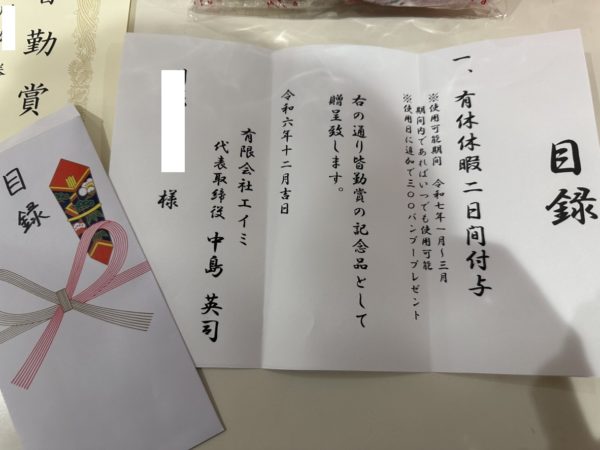 目録
一、有休休暇二日間付与
※使用可能期間 令和七年一月～三月
期間内であればいつでも使用可能
※使用日に追加で三〇〇バンブープレゼント
右の通り皆勤賞の記念品として
贈呈致します。
令和六年十二月吉日
有限会社エイミ
代表取締役 中島 英司
様
勤賞
目録